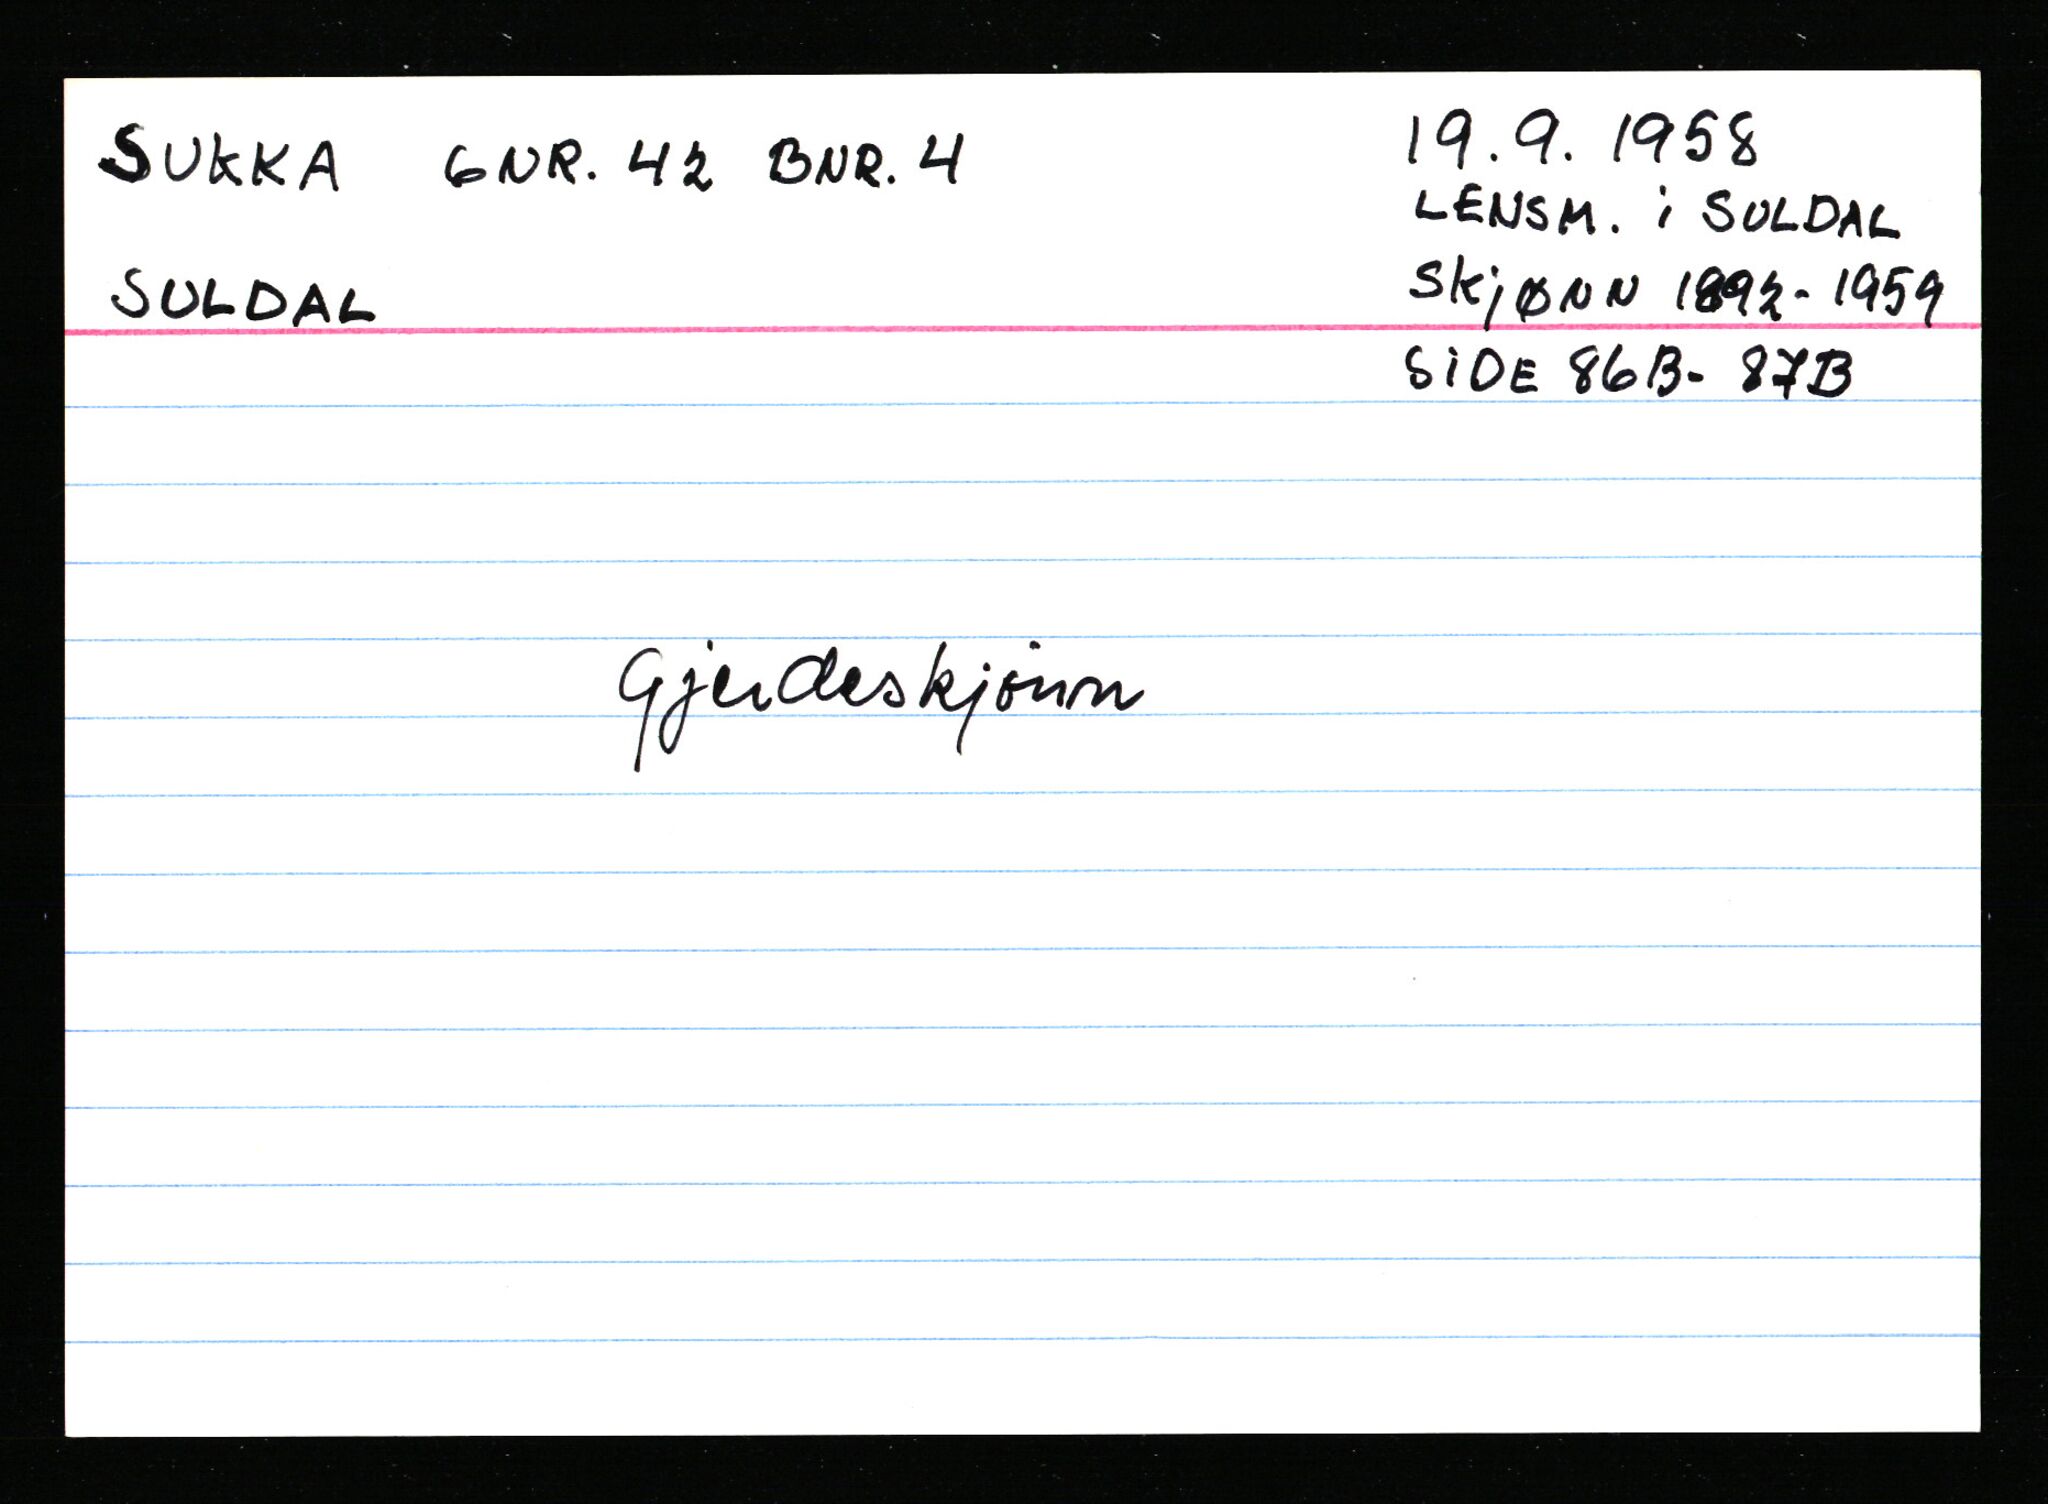 SUKKA GNR. 42 BNR. 4
SULDAL
19.9.1958
LENSM. i SULDAL
SKjØNN 1892-1959
SiDE 86B-87B
Gjerdeskjønn